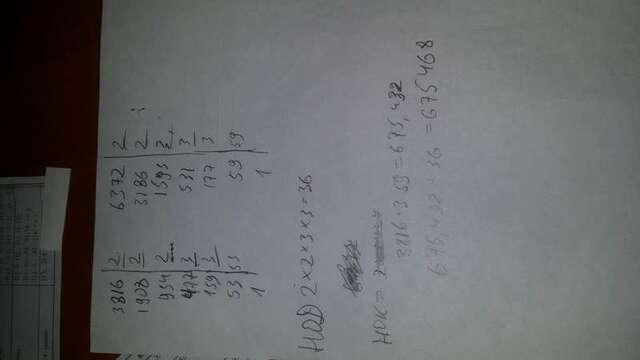 3816 2
1908 2
954 2
477 3
159 3
53 53
1
6372 2
3186 2
1593 3
531 3
177 3
59 59
1
НОД 2×2×3×3=36
НОК =
3816·3·59=675,432
675,432+36=675468